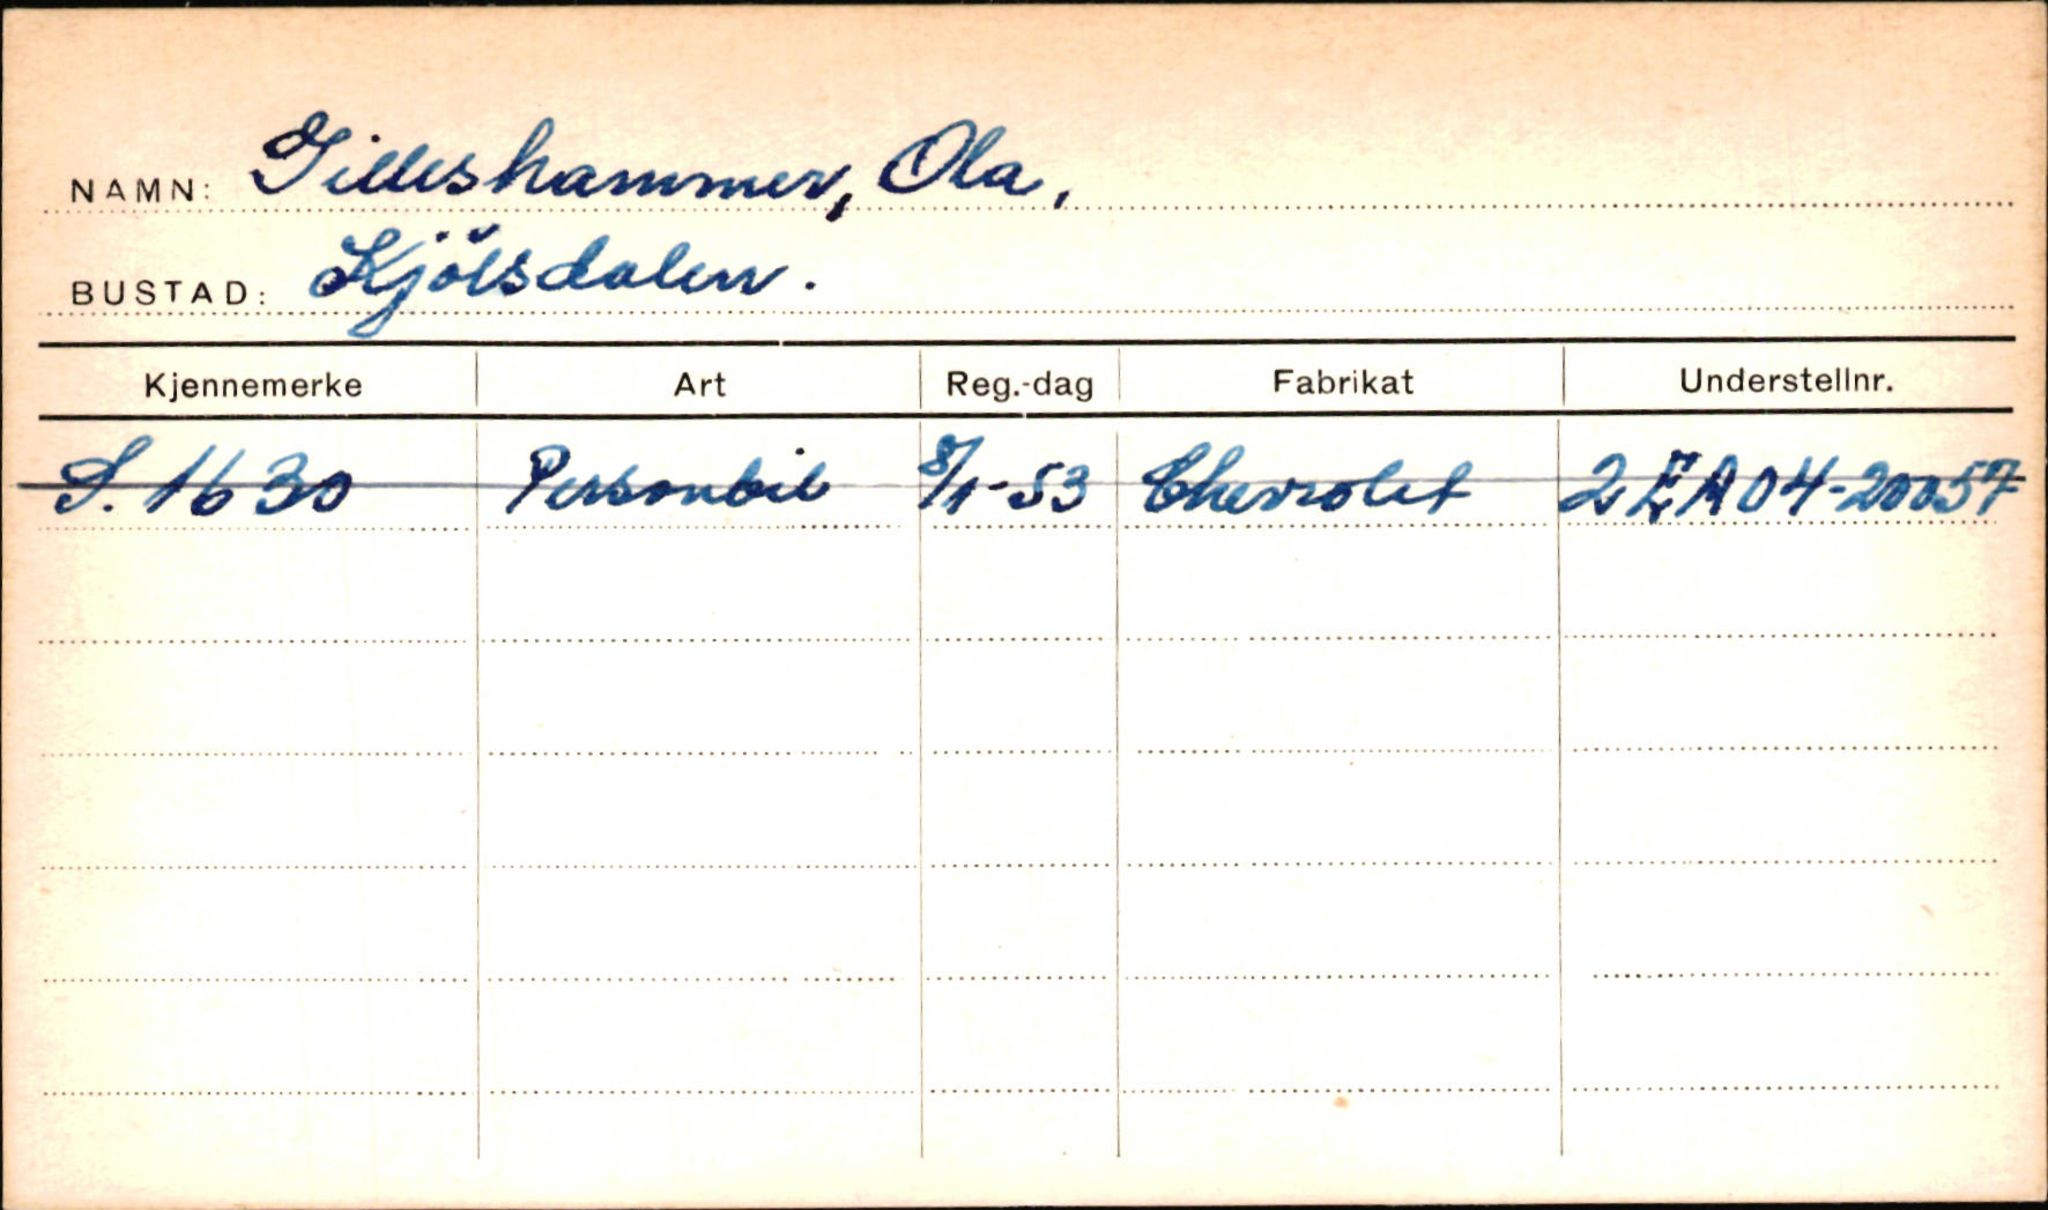 NAMN: Gilleshammer, Ola,
BUSTAD: Kjölsdalen.
Kjennemerke Art Reg.-dag Fabrikat Understellnr.
S. 1630 Personbil 8/1-53 Chevrolet 2EA04-20057